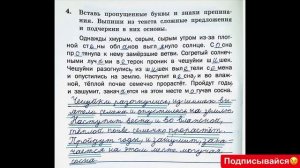 4. Вставь пропущенные буквы и знаки препина-
ния. Выпиши из текста сложные предложения
и подчеркни в них основы.
Однажды хмурым, серым, сырым утром из-за плот-
ной ст ны обл ков выгл нуло солнце. С сно-
ва тянулась к нему замёрзшие ветви. Согретый солнеч-
ными луч ми в терок проник в чешуйки ш
Чешуйки разогнулись из ш шек выл тели с мена
и опустились на землю. Наступит в сна, и во влаж-
ной, тёплой почве семечко прорастёт. Пройдут годы,
и зашумит, закач ется на этом месте м гучая сосна.
Чешуйки разогнулись, из шишек вы-
летели семена и опустились на землю.
Наступит весна, и во влажной,
тёплой почве семечко прорастёт.
Пройдут годы, и зашумит, зака-
чается на этом месте могучая
сосна.
Подписывайся